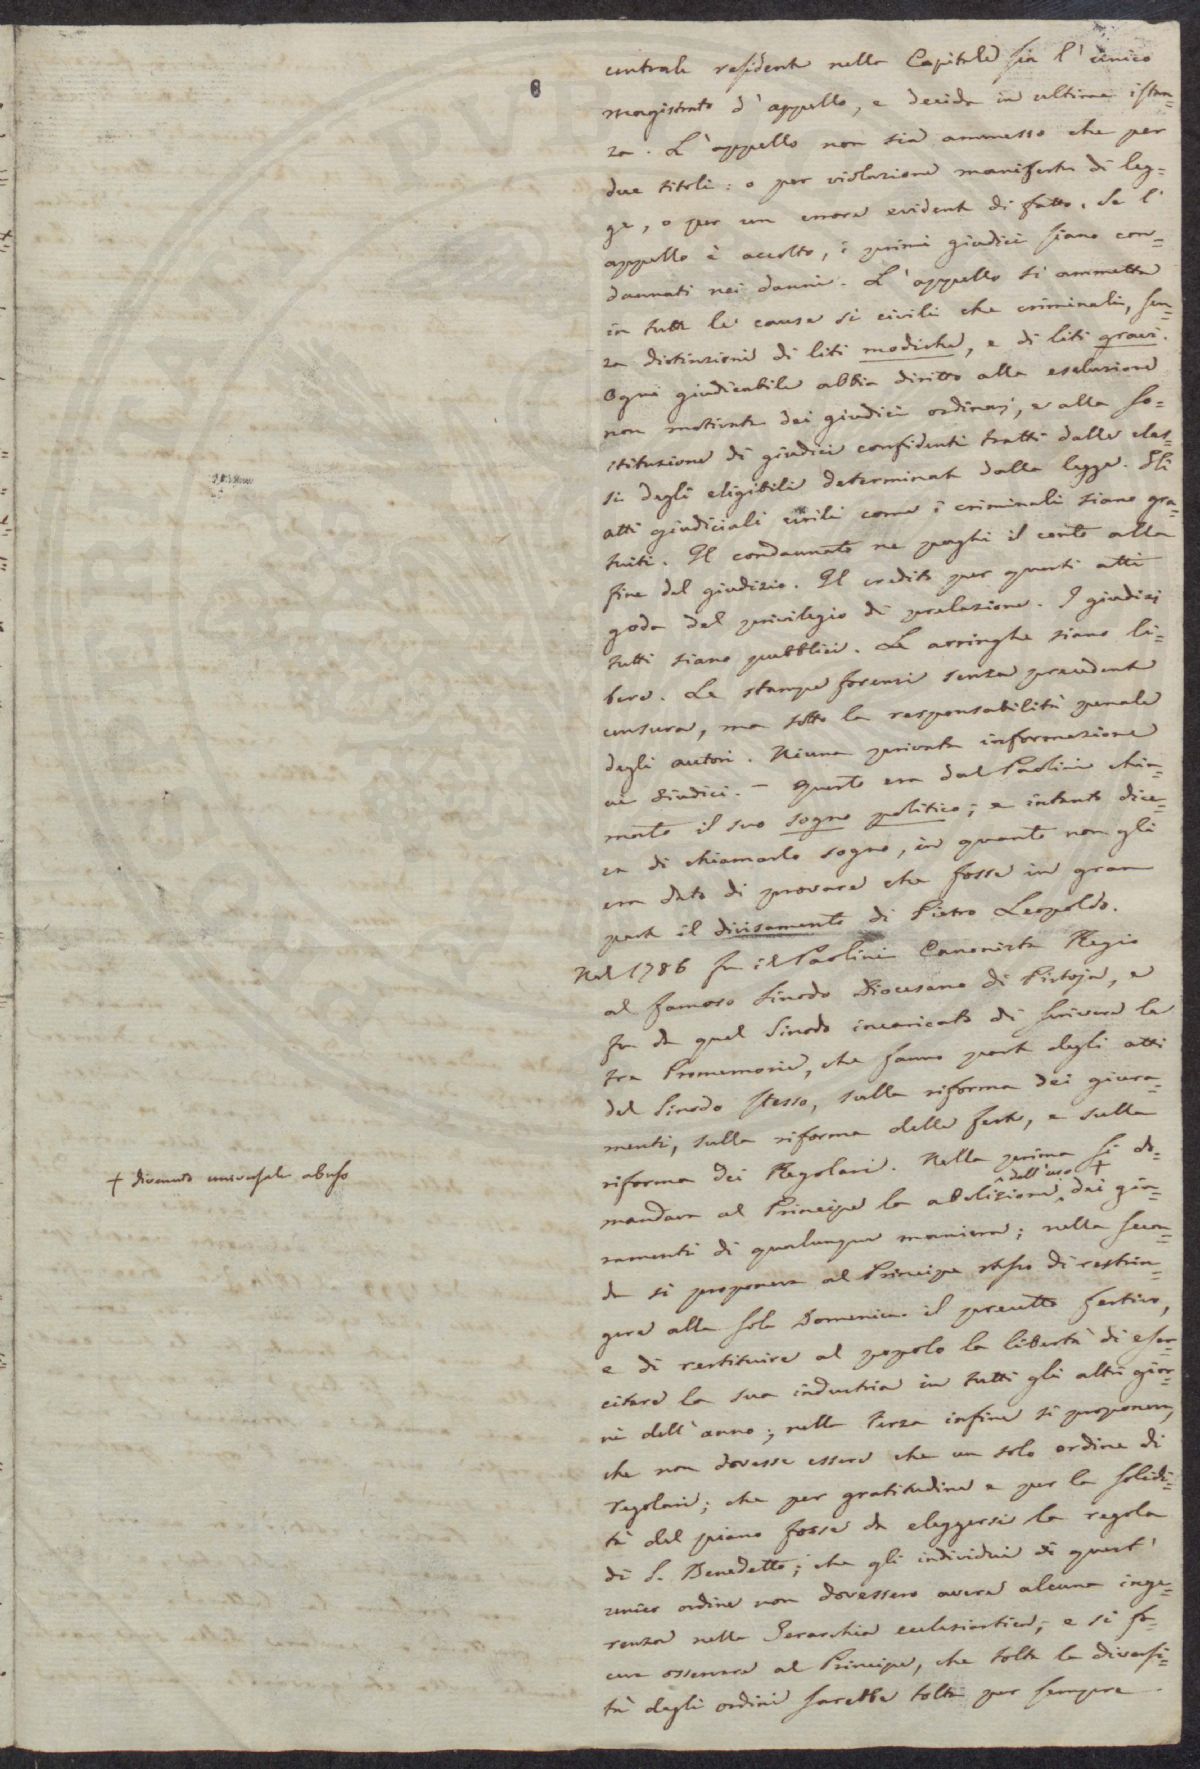 8
centrale residente nella Capitale sia l'unico
magistrato d'appello, e decida in ultima istan=
za. L'appello non sia ammesso che per
due titoli: o per violazione manifesta di leg=
ge, o per un errore evidente di fatto. Se l'
appello è accolto, i primi giudici siano con=
dannati nei danni. L'appello si ammetta
in tutte le cause sì civili che criminali, sen=
za distinzione di liti modiche, e di liti gravi.
Ogni giudicabile abbia diritto alla esclusione
non motivata dei giudici ordinarj, e alla so=
stituzione di giudici confidenti tratti dalle clas=
si degli eligibili determinate dalla legge. Gli
atti giudiciali civili come i criminali siano gra=
tuiti. Il condannato ne paghi il conto alla
fine del giudizio. Il credito per questi atti
goda del privilegio di prelazione. I giudizi
tutti siano pubblici. Le arringhe siano li=
bere. Le stampe forensi senza precedente
censura, ma sotto la responsabilità penale
degli autori. Niuna privata informazione
ai Giudici. – Questo era dal Paolini chia=
mato il suo sogno politico; e intanto dice=
va di chiamarlo sogno, in quanto non gli
era dato di provare che fosse in gran
parte il divisamento di Pietro Leopoldo.
Nel 1786 fu il Paolini Canonista Regio
al famoso Sinodo Diocesano di Pistoja, e
fu da quel Sinodo incaricato di scrivere le
tre Promemorie, che fanno parte degli atti
del Sinodo stesso, sulla riforma dei giura=
menti, sulla riforma delle feste, e sulla
riforma dei Regolari. Nella prima si do=
mandava al Principe la abolizione dell'uso + dei giu=
+ divenuto universale abuso
ramenti di qualunque maniera; nella secon=
da si proponeva al Principe stesso di restrin=
gere alla sola Domenica il precetto festivo,
e di restituire al popolo la libertà di eser=
citare la sua industria in tutti gli altri gior=
ni dell'anno; nella terza infine si proponeva,
che non dovesse essere che un solo ordine di
regolari; che per gratitudine e per la solidi=
tà del piano fosse da eleggersi la regola
di S. Benedetto; che gli individui di quest'
unico ordine non dovessero avere alcuna inge=
renza nella Gerarchia ecclesiastica; e si fa=
ceva osservare al Principe, che tolta la diversi=
tà degli ordini sarebbe tolta per sempre